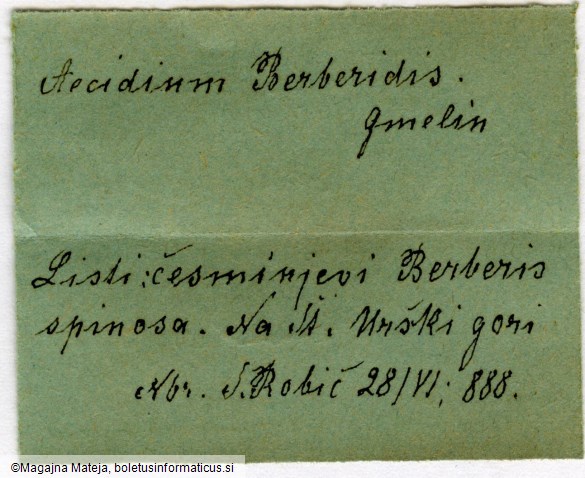 Aecidium Berberidis.
Gmelin
Listi: česminjevi Berberis
spinosa. Na Št. Urški gori
Nbr. S. Robič 28/VI; 888.
©Magajna Mateja, boletusinformaticus.si